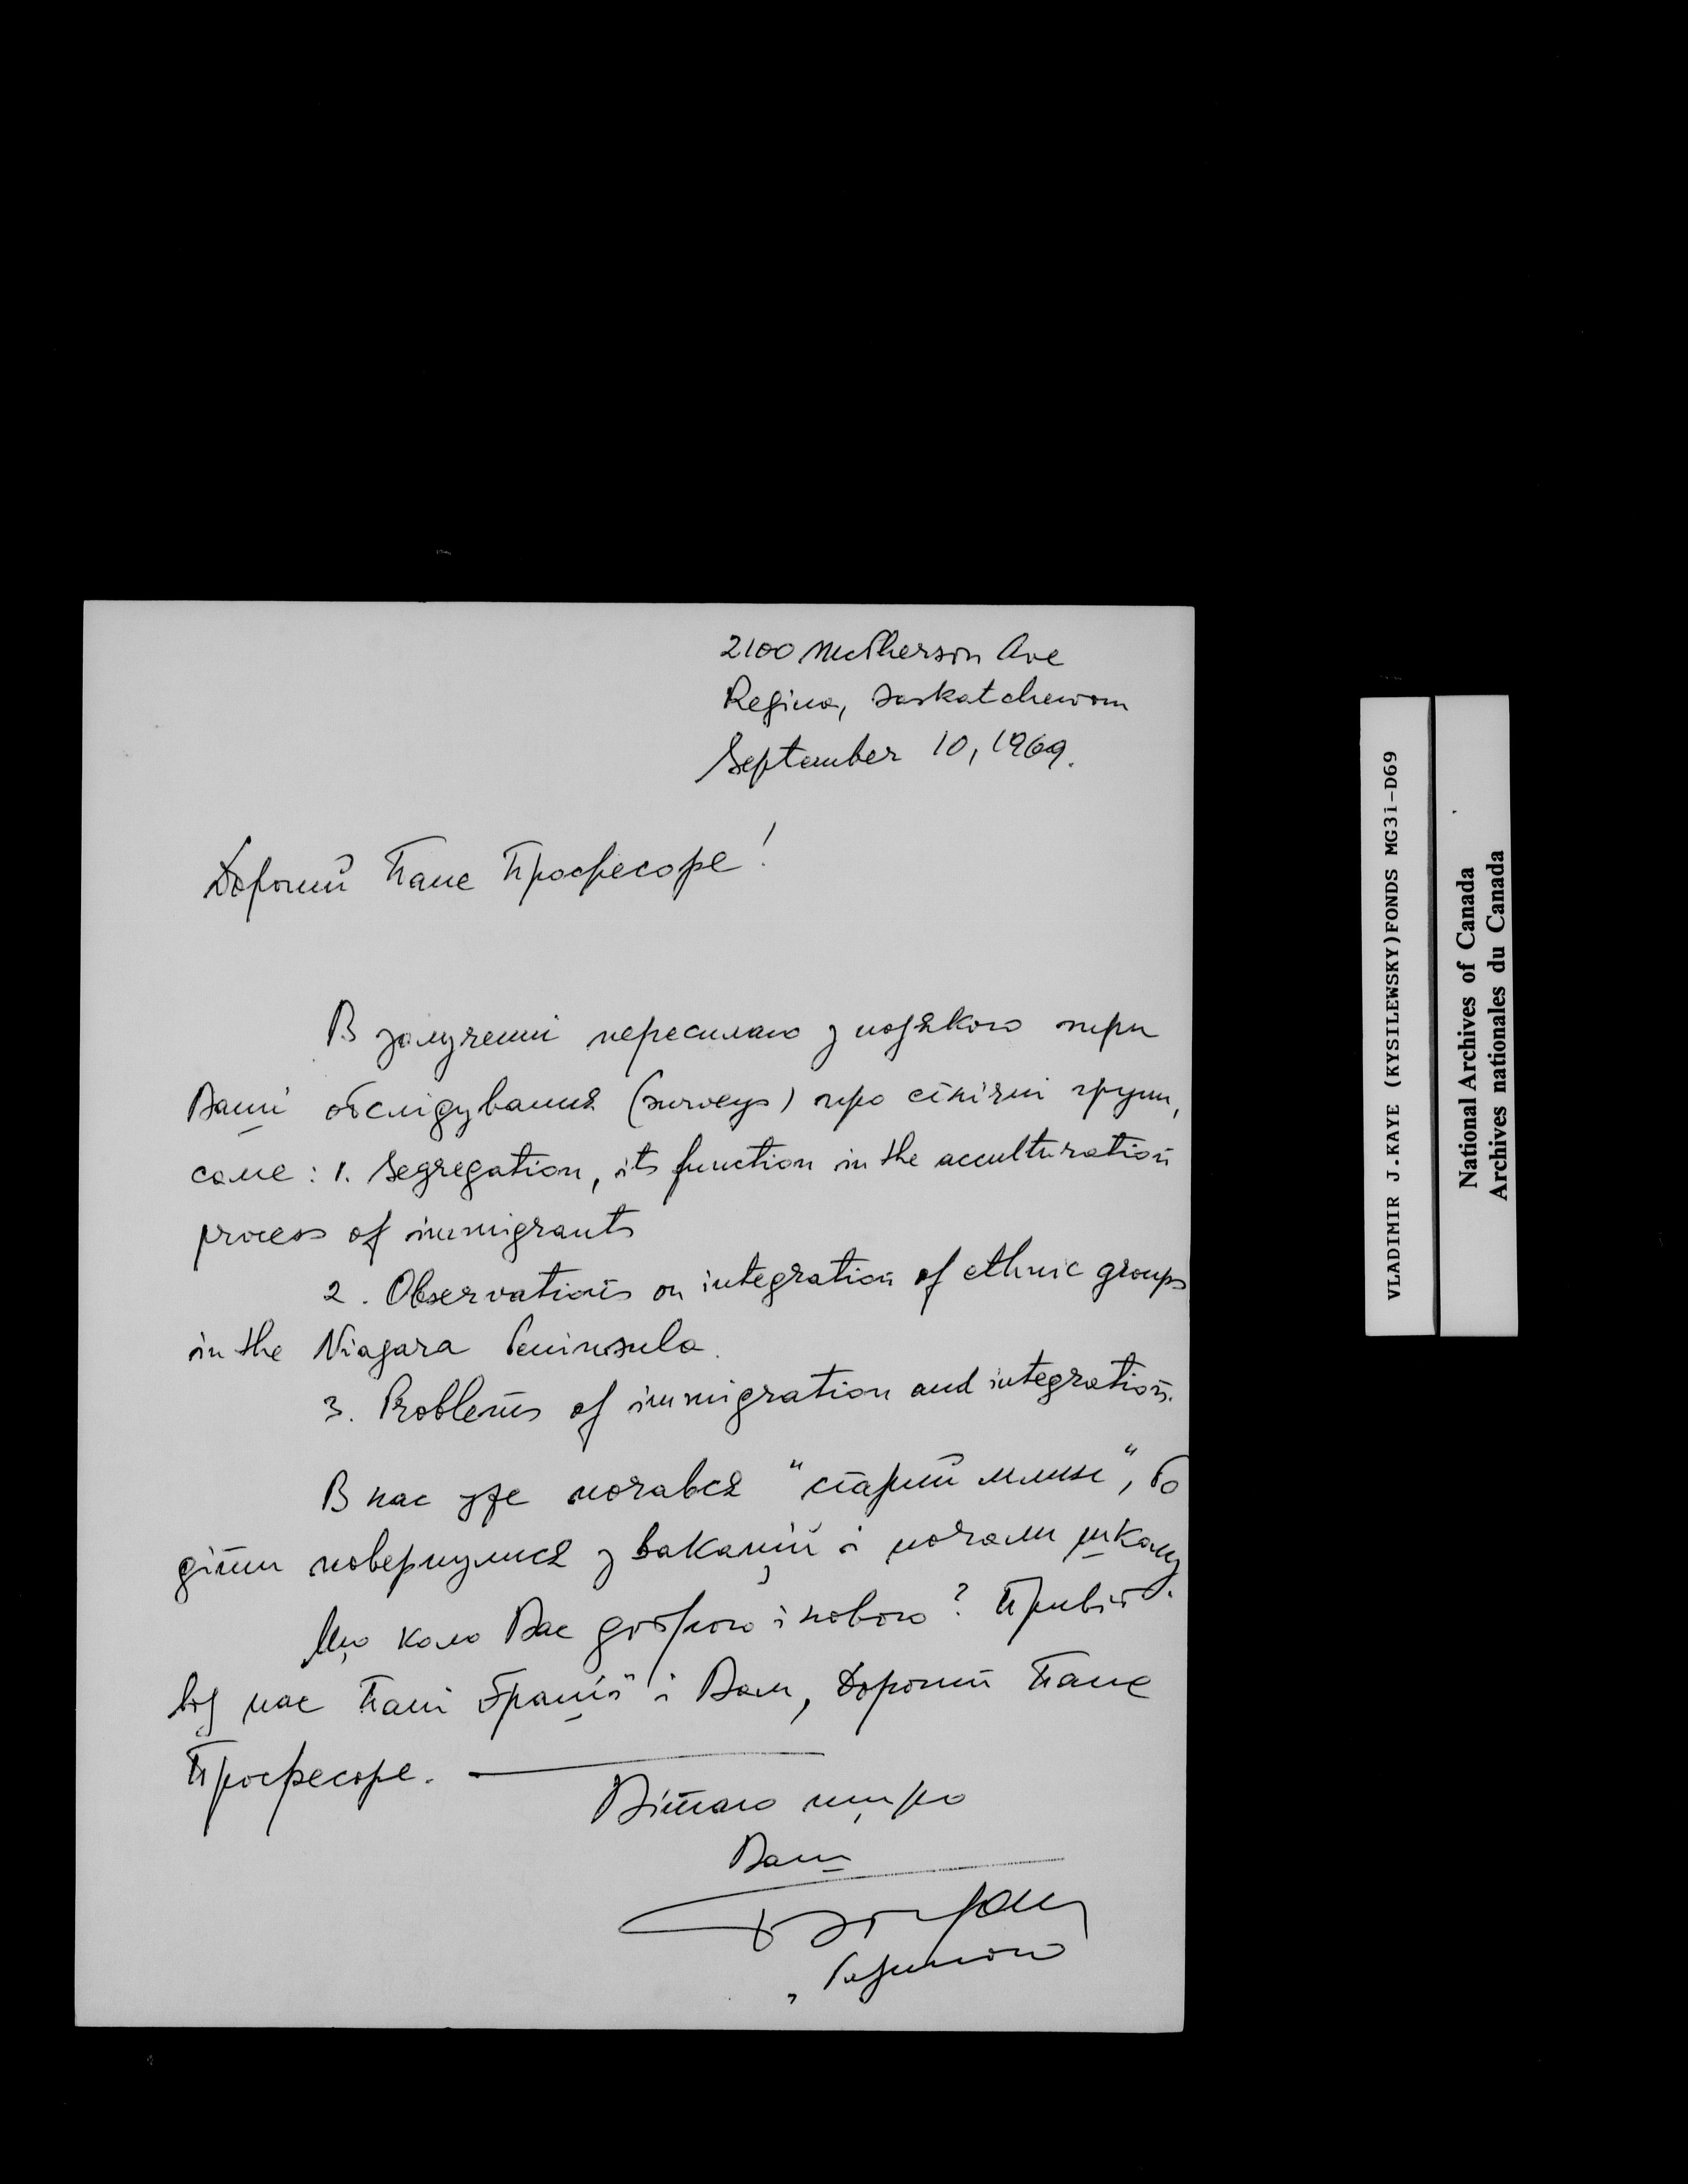 2100 McPherson Ave
Regina, Saskatchewan
September 10, 1969.
Дорогий Пане Професоре!
В залученні пересилаю з подякою три
Ваші обслідування (surveys) про етнічні групи,
саме: 1. Segregation, its function in the acculturation
process of immigrants
2. Observations on integration of ethnic groups
in the Niagara Peninsula.
3. Problems of immigration and integration.
В нас уже почався "старий млин", бо
діти повернулися з вакацій і почали школу.
Що коло Вас доброго і нового? Привіт
від нас Пані Грації і Вам, Дорогий Пане
Професоре.
Вітаю щиро
Ваш
Богдан
з Родиною
VLADIMIR J.KAYE (KYSILEWSKY)FONDS MG31-D69
National Archives of Canada
Archives nationales du Canada